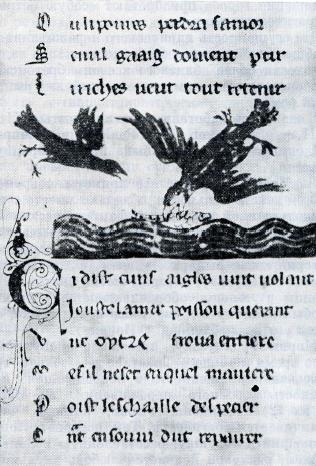 O u li poures perdra samor
S eruil gaaig doiuent perir
L i riches ueut tout retenir
C i dist cuns aigles uint uolant
Jouste la mer poisson querant
V ne oystre troua entiere
M es il ne set en quel maniere
P oist leschaille despecier
C nt en souui dut repairer